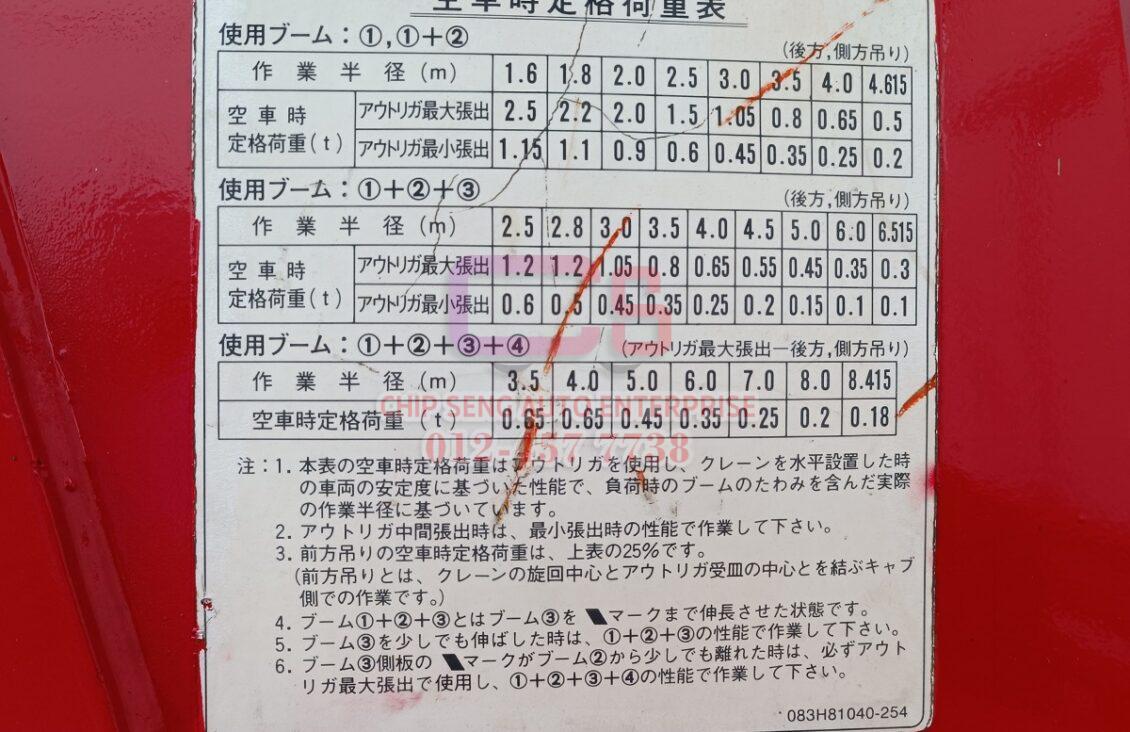 空車時定格荷重表
使用ブーム：①,①＋②
(後方,側方吊り)
作業半径(m) 1.6 1.8 2.0 2.5 3.0 3.5 4.0 4.615
空車時定格荷重(t)
アウトリガ最大張出 2.5 2.2 2.0 1.5 1.05 0.8 0.65 0.5
アウトリガ最小張出 1.15 1.1 0.9 0.6 0.45 0.35 0.25 0.2
使用ブーム：①＋②＋③
(後方,側方吊り)
作業半径(m) 2.5 2.8 3.0 3.5 4.0 4.5 5.0 6.0 6.515
空車時定格荷重(t)
アウトリガ最大張出 1.2 1.2 1.05 0.8 0.65 0.55 0.45 0.35 0.3
アウトリガ最小張出 0.6 0.5 0.45 0.35 0.25 0.2 0.15 0.1 0.1
使用ブーム：①＋②＋③＋④
(アウトリガ最大張出ー後方,側方吊り)
作業半径(m) 3.5 4.0 5.0 6.0 7.0 8.0 8.415
空車時定格荷重(t) 0.65 0.65 0.45 0.35 0.25 0.2 0.18
CHIP SENG AUTO ENTERPRISE
012-457 7738
注：1. 本表の空車時定格荷重はアウトリガを使用し、クレーンを水平設置した時
の車両の安定度に基づいた性能で、負荷時のブームのたわみを含んだ実際
の作業半径に基づいています。
2. アウトリガ中間張出時は、最小張出時の性能で作業して下さい。
3. 前方吊りの空車時定格荷重は、上表の25%です。
(前方吊りとは、クレーンの旋回中心とアウトリガ受皿の中心とを結ぶキャブ
側での作業です。)
4. ブーム①＋②＋③とはブーム③を マークまで伸長させた状態です。
5. ブーム③を少しでも伸ばした時は、①＋②＋③の性能で作業して下さい。
6. ブーム③側板の マークがブーム②から少しでも離れた時は、必ずアウト
リガ最大張出で使用し、①＋②＋③＋④の性能で作業して下さい。
083H81040-254